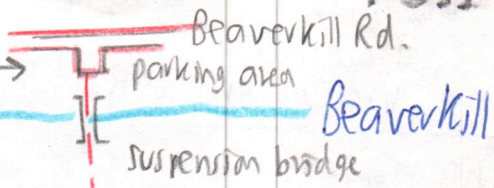 Beaverkill Rd.
parking area
Beaverkill
suspension bridge